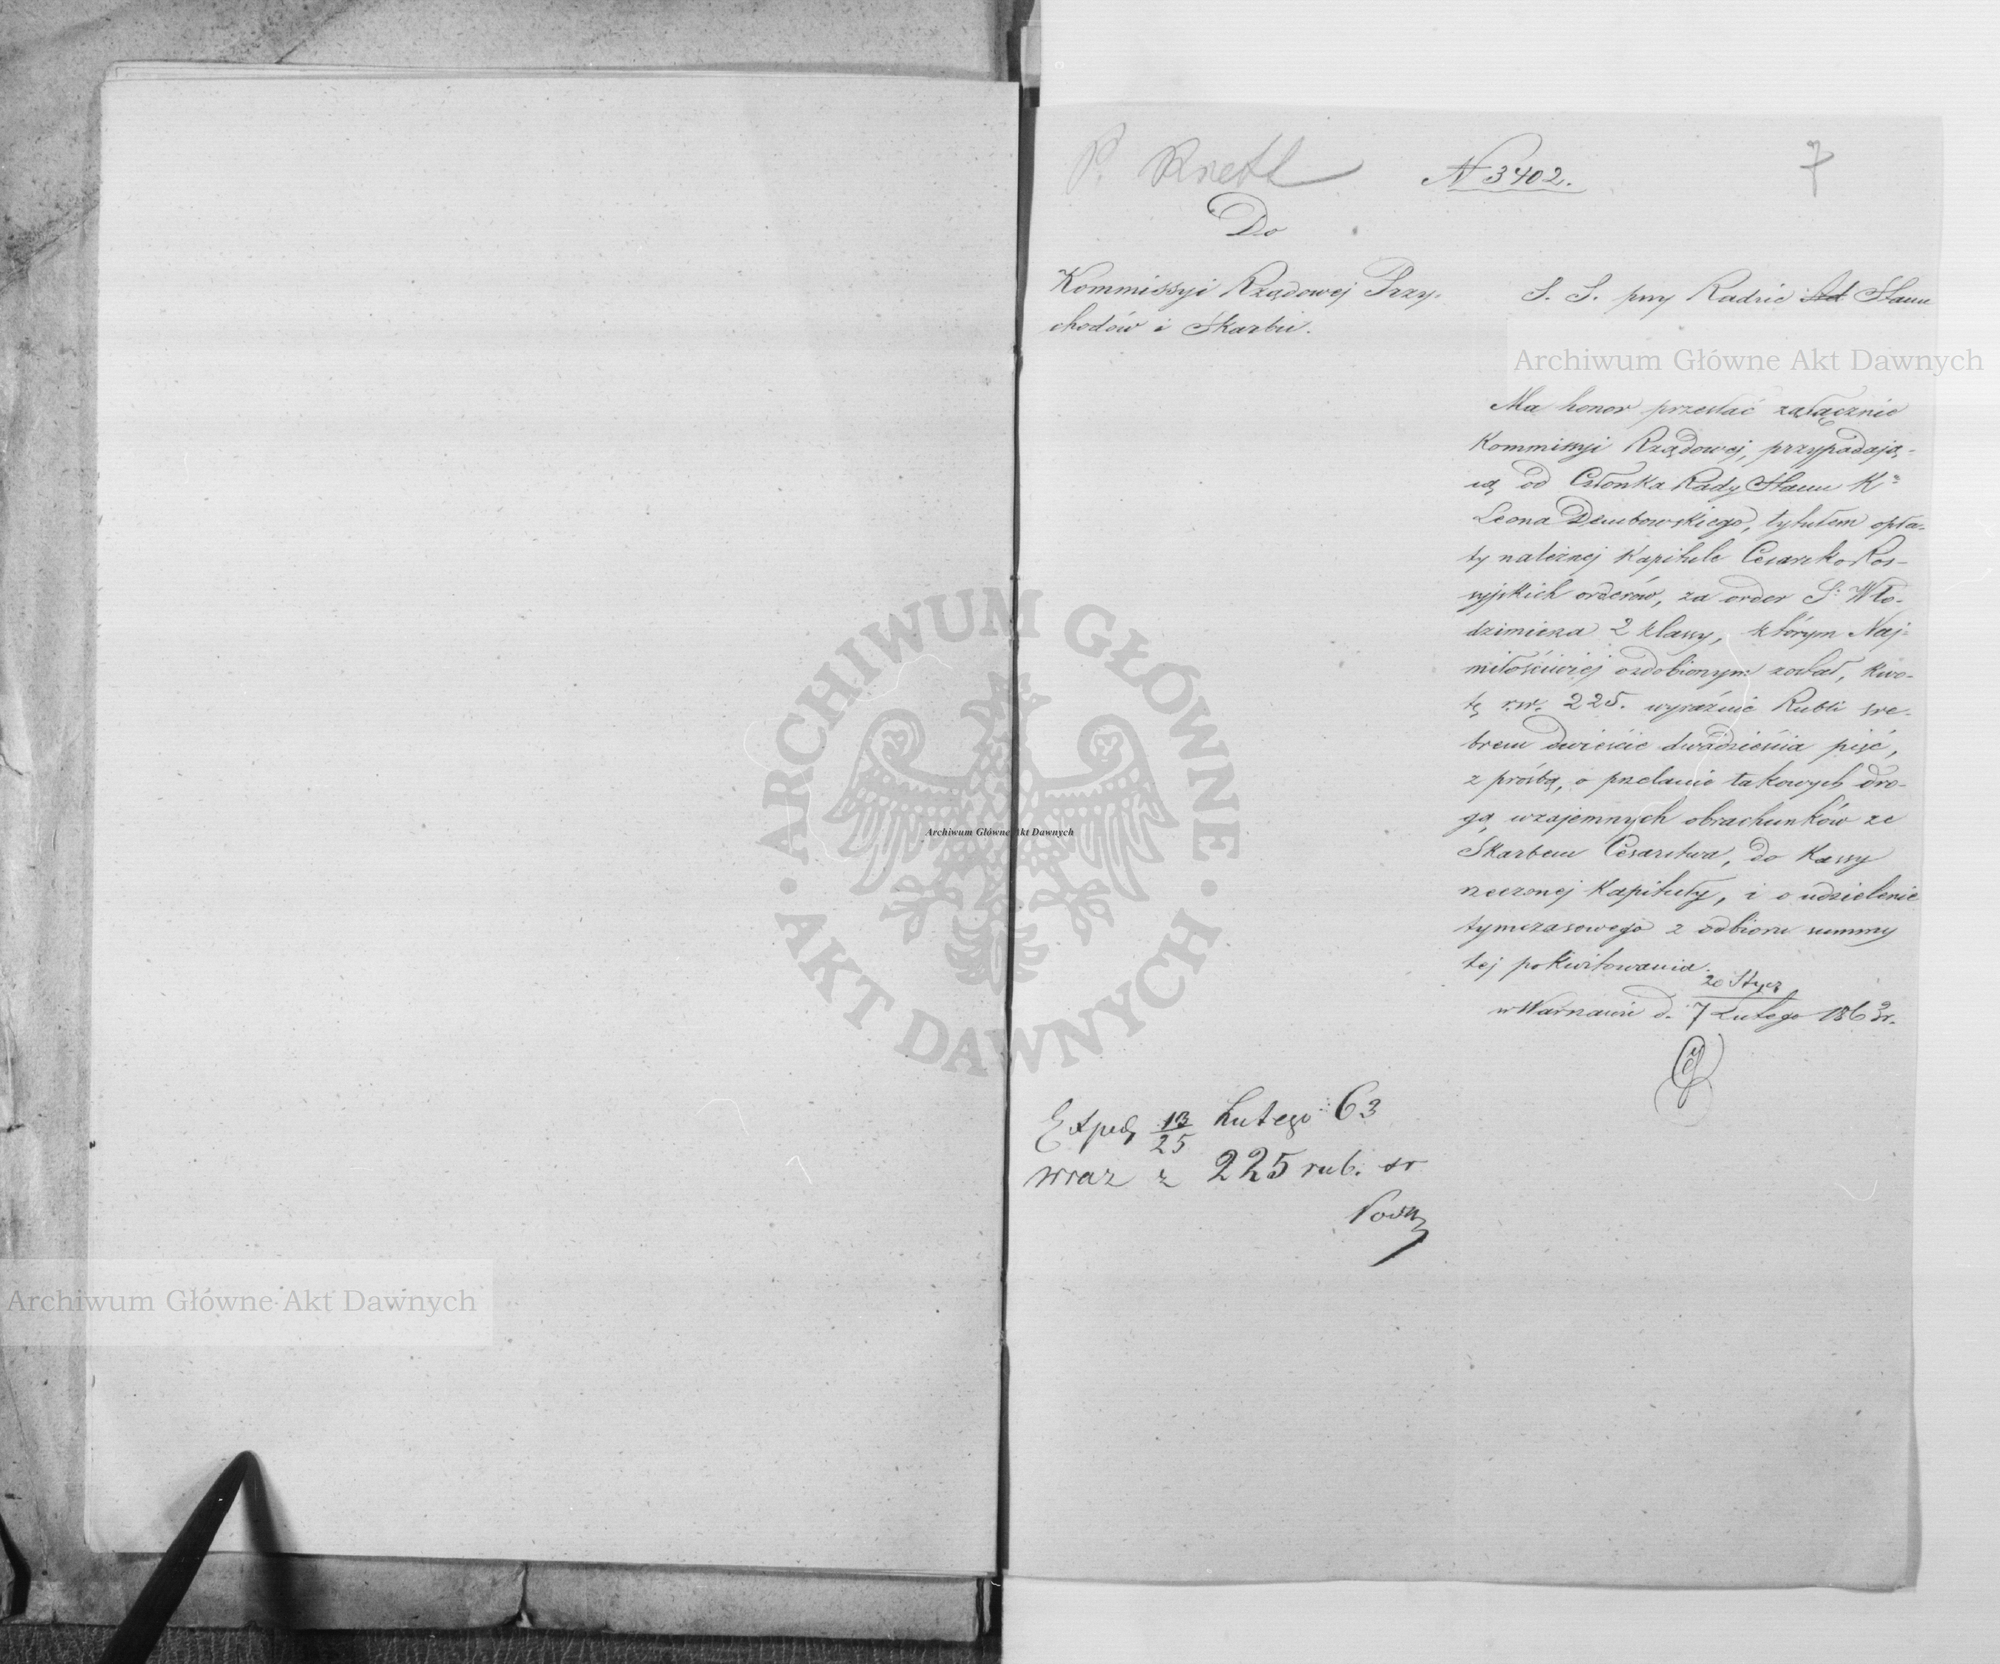 P. Knetl
N 3402.
7
Do
Kommissyi Rządowej Przy-
chodów i Skarbu.
S. S. przy Radzie Stanu
Archiwum Główne Akt Dawnych
Ma honor przesłać załącznie
Kommissyi Rządowej, przypadają-
cą od Członka Rady Stanu Kr
Leona Dembowskiego, tytułem opła-
ty należnej Kapitule Cesarsko Ros-
syjskich orderów, za order Sgo Wło-
dzimierza 2 klassy, którym Naj-
miłościwiej ozdobionym został, kwo-
tę r.sr. 225. wyraźnie Rubli sre-
brem dwieście dwadzieścia pięć,
z prośbą, o przelanie takowych dro-
gą wzajemnych obrachunków ze
Skarbem Cesarstwa, do Kassy
rzeczonej Kapituły, i o udzielenie
tymczasowego z odbioru summy
tej pokwitowania.
20 Stycz
w Warszawie d. 7 Lutego 1863 r.
Exped. 13/25 Lutego 63
wraz z 225 rub. sr
ARCHIWUM GŁÓWNE
AKT DAWNYCH
Archiwum Główne Akt Dawnych
Archiwum Główne Akt Dawnych